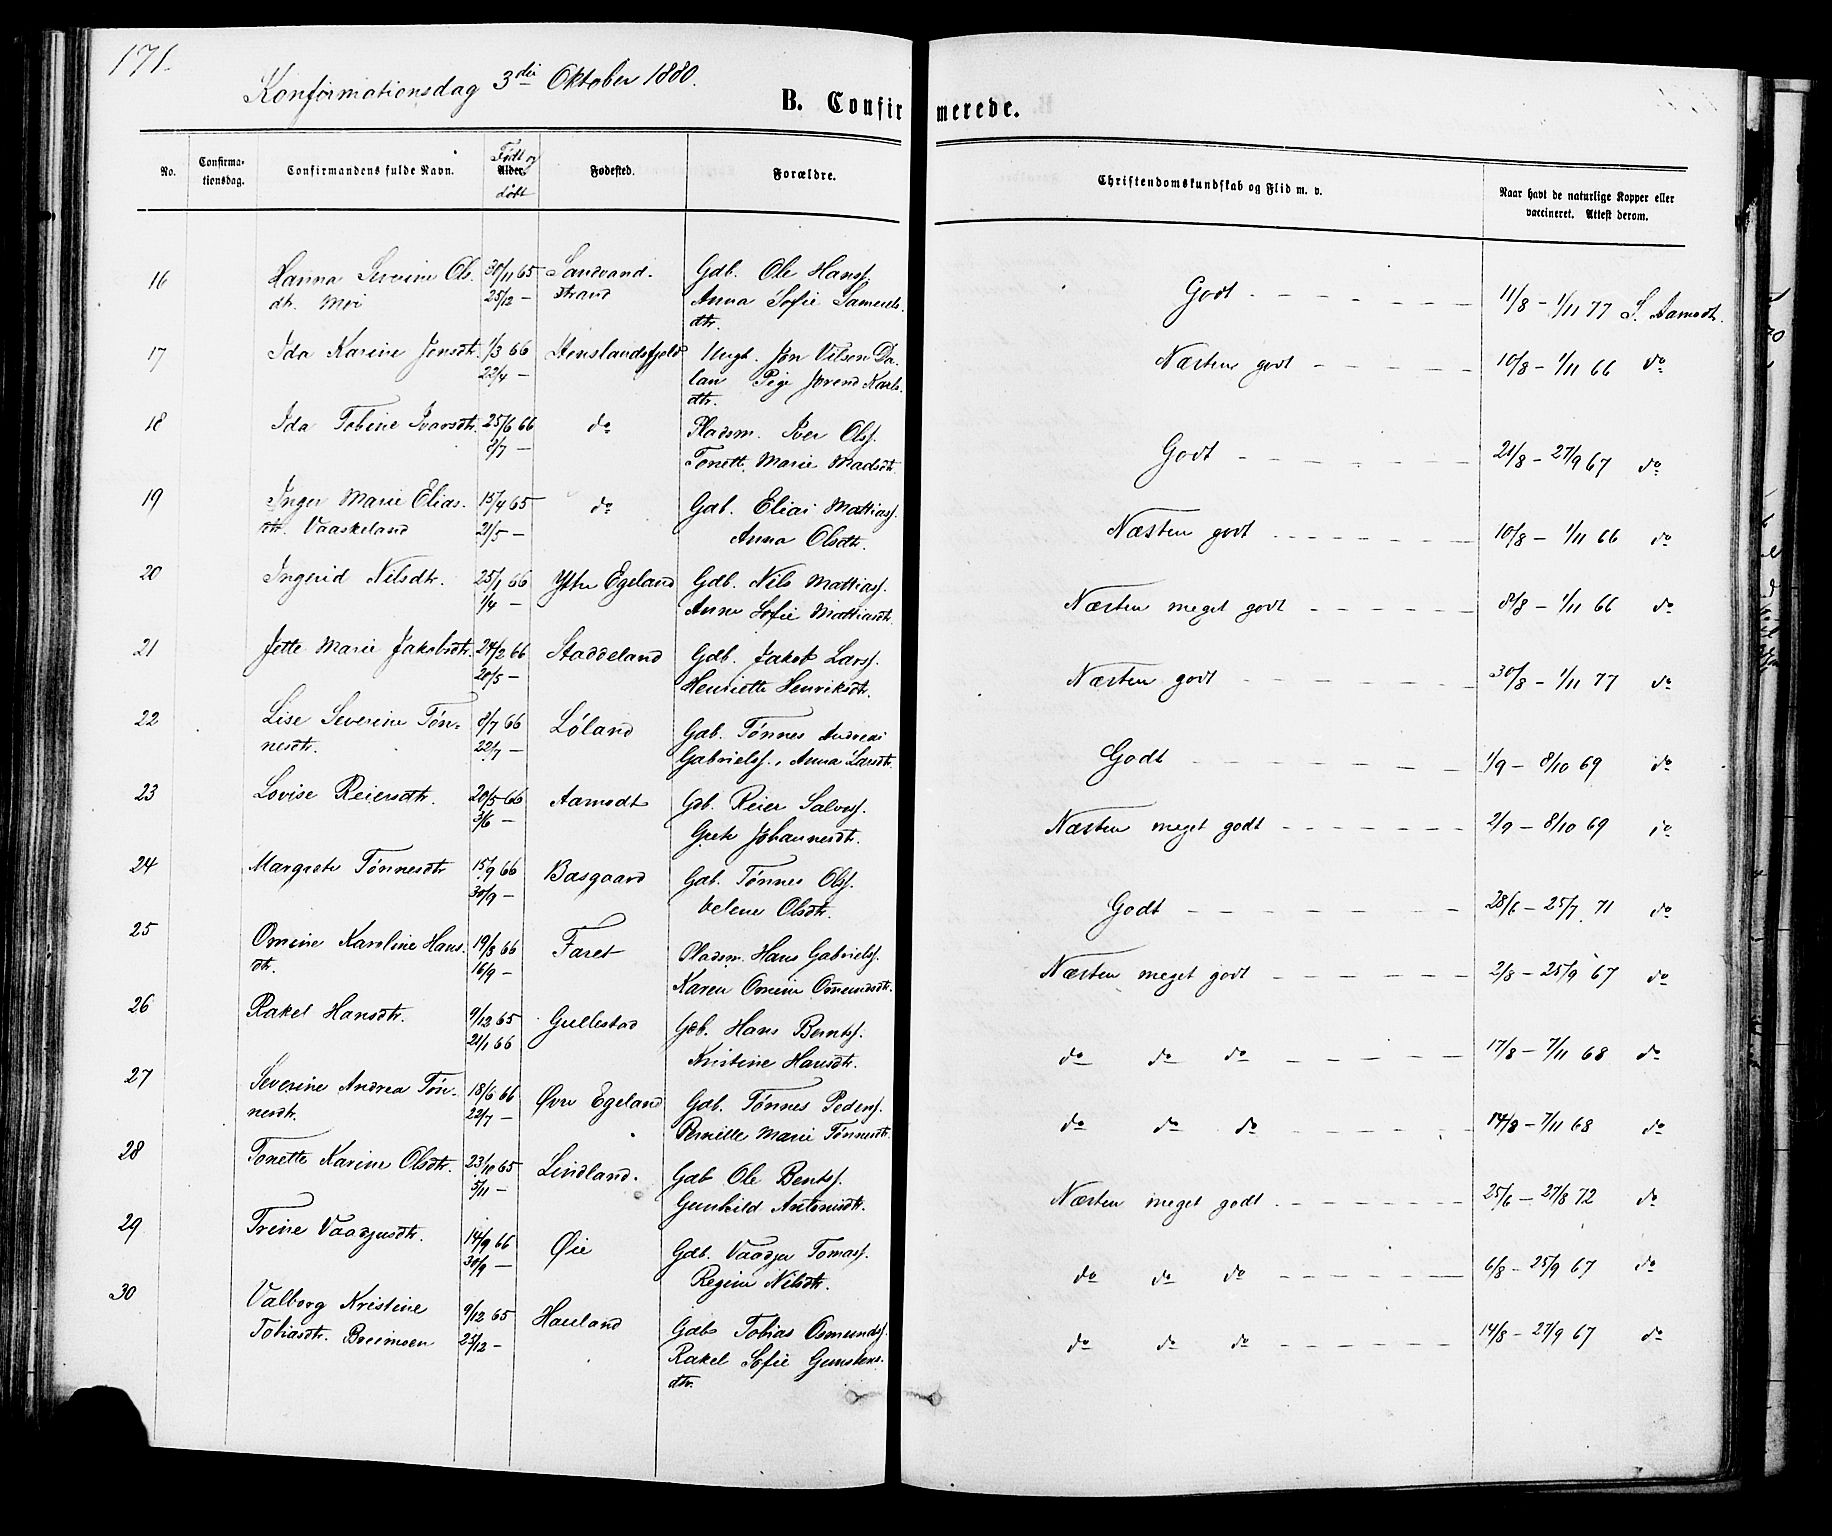 171.
Konfirmationsdag 3die Oktober 1880.
B. Confirmerede.
No. Confirmationsdag. Confirmandens fulde Navn. Født og Alder. døbt Fødested. Forældre. Christendomskundskab og Flid m. v. Naar havt de naturlige Kopper eller vaccineret. Attest derom.
16 Hanna Severine Ols- 30/11 65 Sandvand- Gdb. Ole Hanss. Godt 11/8 – 1/11 77 S. Aamodt.
dtr. Moi 25/12 – strand Anna Sofie Samuels-
dtr.
17 Ida Karine Jensdtr. 1/3 66 Stenslandsfjeld Ungk. Jon Vilson Da- Næsten godt 10/8 – 1/11 66 do
22/4 – lan Pige Jorend Karls-
dtr.
18 Ida Tobine Ivarsdtr. 25/6 66 do Pladsm. Iver Olss. Godt 21/8 – 27/9 67 do
8/7 – Tonett. Marie Madsdtr.
19 Inger Marie Elias- 15/4 65 do Gdb. Elias Mattiass. Næsten godt 10/8 – 1/11 66 do
dtr. Vaaskeland 21/5 – Anna Olsdtr.
20 Ingerid Nilsdtr. 25/1 66 Ytre Egeland Gdb. Nils Mattiass. Næsten meget godt 8/8 – 1/11 66 do
1/4 – Anne Sofie Mattiasdtr.
21 Jette Marie Jakobsdtr. 24/2 66 Staddeland Gdb. Jakob Larss. Næsten godt 30/8 – 1/11 77 do
20/5 – Henriette Henriksdtr.
22 Lise Severine Tøn- 8/7 66 Løland Gdb. Tønnes Andreas Godt 1/9 – 8/10 69 do
nesdtr. 22/7 – Gabrielss., Anna Larsdtr.
23 Lovise Reiersdtr. 20/5 66 Aamodt Gdb. Reier Salves. Næsten meget godt 2/9 – 8/10 69 do
3/6 – Grete Johannesdtr.
24 Margrete Tønnesdtr 15/9 66 Basgaard Gdb. Tønnes Olss. Godt 28/6 – 25/7 71 do
30/9 – Velene Olsdtr.
25 Omine Karoline Hans- 19/8 66 Faret Pladsm. Hans Gabrielss. Næsten meget godt 2/8 – 25/9 67 do
dtr. 16/9 – Karen Omine Omundsdtr.
26 Rakel Hansdtr. 9/12 65 Gullestad Gdb. Hans Berntss. do do do 17/8 – 7/11 68 do
21/1 66 Kristine Hansdtr.
27 Severine Andrea Tøn- 18/6 66 Øvre Egeland Gdb. Tønnes Peders. do do do 14/8 – 7/11 68 do
nesdtr. 22/7 – Pernille Marie Tønnesdtr.
28 Tonette Karine Olsdtr. 23/10 65 Lindland. Gdb Ole Bentss. Næsten meget godt 25/6 – 27/8 72 do
5/11 – Gunhild Antonisdtr.
29 Trine Vaadjusdtr. 14/9 66 Øie Gdb. Vaadju Tomass. do do do 6/8 – 25/9 67 do
30/9 – Regine Nilsdtr.
30 Valborg Kristine 9/12 65 Hauland Gdb Tobias Osmunds. do do do 14/8 – 27/9 67 do
Tobiasdtr. Breimoen 25/12 – Rakel Sofie Gunstens-
dtr.